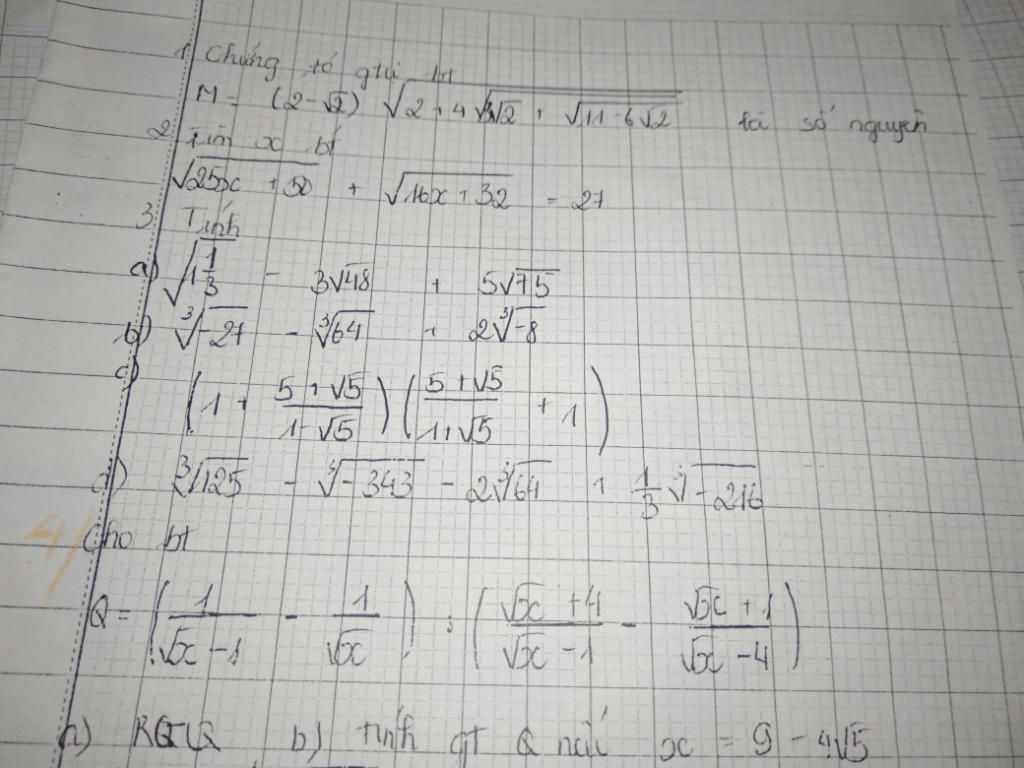 1. Chứng tỏ giá trị
M = (2-√2) √2+4√√2 + √11-6√2 là số nguyên
2. Tìm x bt
√25x + 50 + √16x + 32 = 27
3. Tính
a) √1 1/3 - 3√48 + 5√75
b) ∛-27 - ∛64 + 2∛-8
c)
(1 + (5+√5)/(1-√5)) ((5+√5)/(1+√5) + 1)
d) ∛125 - ∛-343 - 2∛64 + 1/3 ∛-216
4/ Cho bt
Q = (1/(√x-1) - 1/√x) : ((√x+4)/(√x-1) - (√x+1)/(√x-4))
a) RGQ b) tính gt Q nếu x = 9 - 4√5